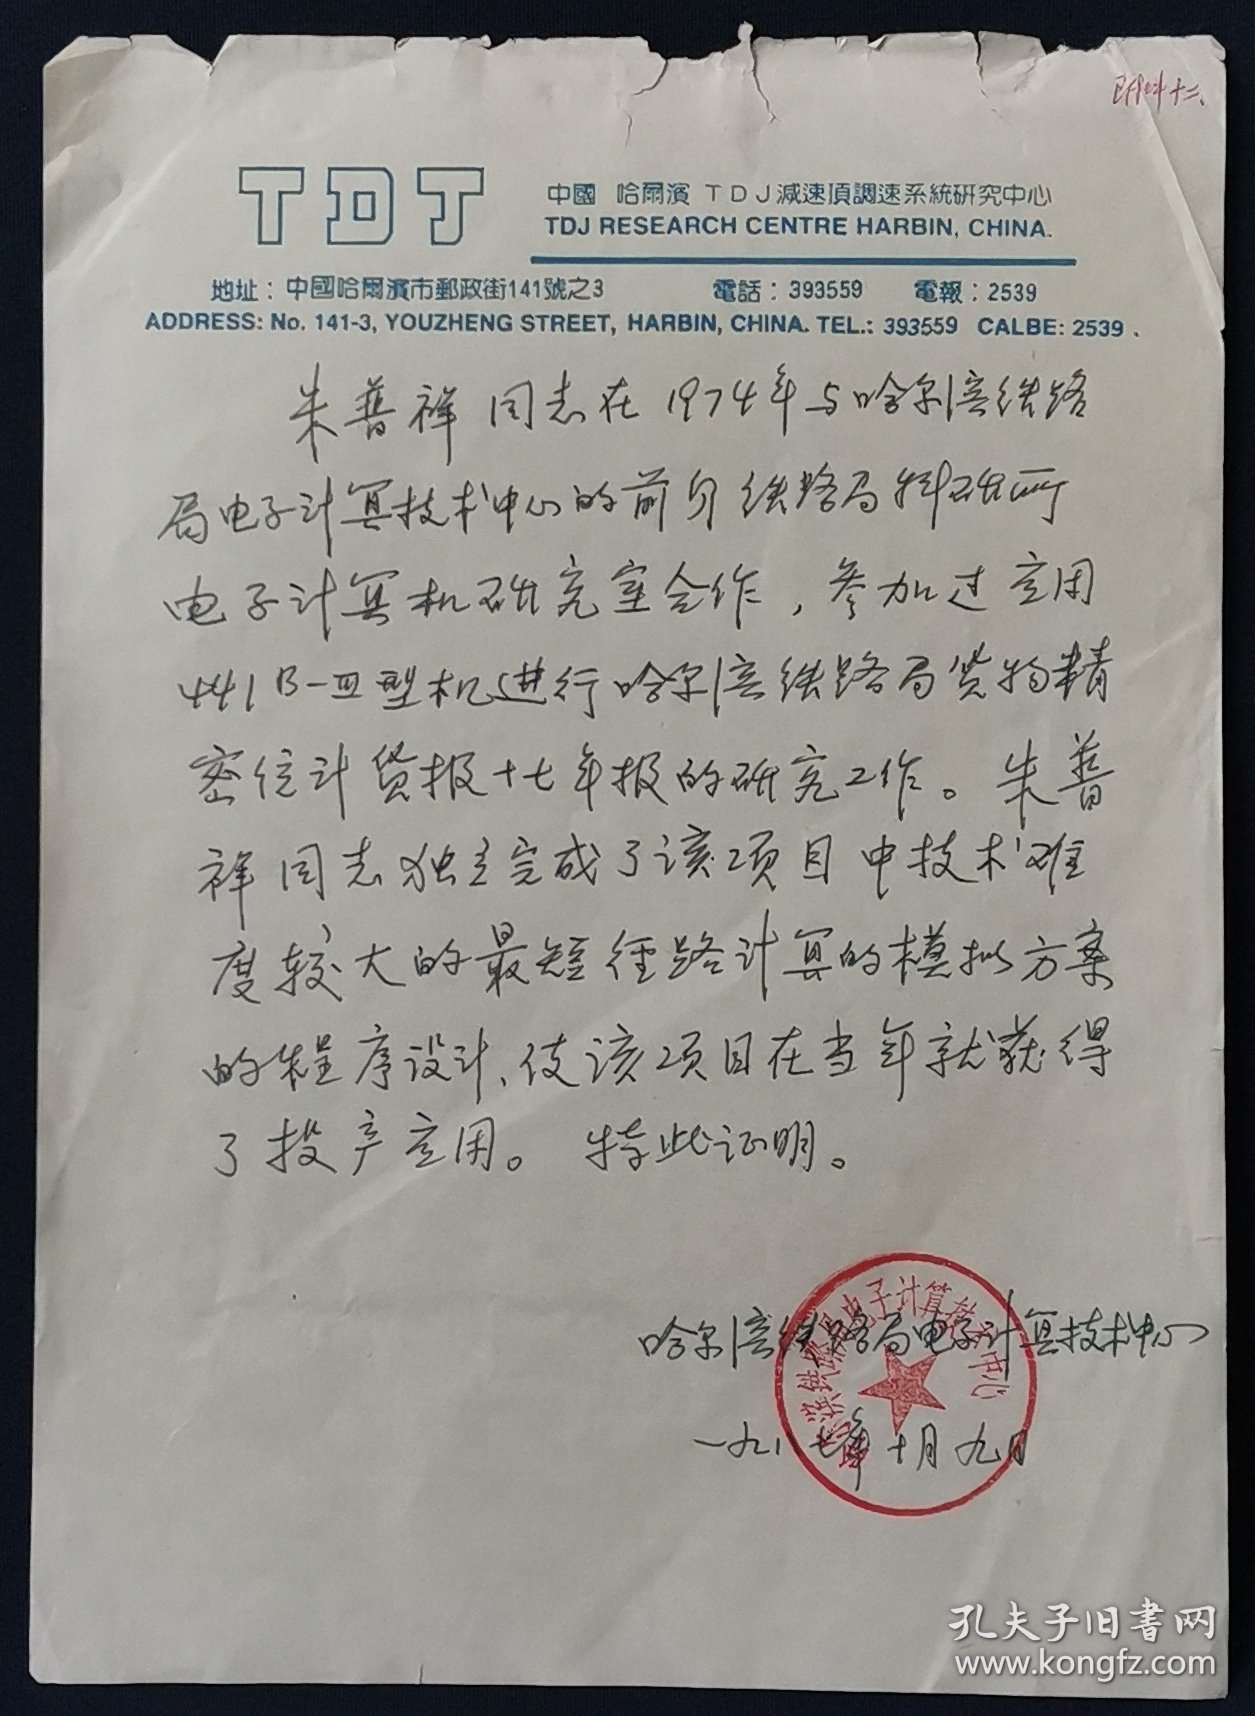 附件十二、
TDJ
中國 哈爾濱 TDJ減速頂調速系統研究中心
TDJ RESEARCH CENTRE HARBIN, CHINA.
地址：中國哈爾濱市郵政街141號之3 電話：393559 電報：2539
ADDRESS: No. 141-3, YOUZHENG STREET, HARBIN, CHINA. TEL.: 393559 CALBE: 2539.
朱普祥同志在1974年与哈尔滨铁路
局电子计算技术中心的前身铁路局科研所
电子计算机研究室合作，参加过应用
441B-Ⅲ型机进行哈尔滨铁路局货物精
密统计货报十七年报的研究工作。朱普
祥同志独立完成了该项目中技术难
度较大的最短径路计算的模拟方案
的程序设计、使该项目在当年就获得
了投产应用。 特此证明。
哈尔滨铁路局电子计算技术中心
一九八七年十月九日
哈尔滨铁路局电子计算技术中心
孔夫子旧書网
www.kongfz.com